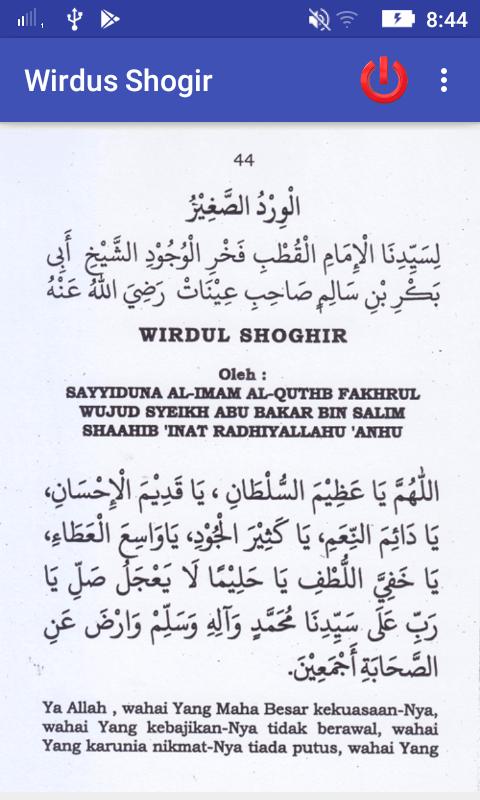 8:44
Wirdus Shogir
44
الْوِرْدُ الصَّغِيْرُ
لِسَيِّدِنَا الْإِمَامِ الْقُطْبِ فَخْرِ الْوُجُوْدِ الشَّيْخِ أَبِى
بَكْرِ بْنِ سَالِمٍ صَاحِبِ عِيْنَاتْ رَضِيَ اللهُ عَنْهُ
WIRDUL SHOGHIR
Oleh :
SAYYIDUNA AL-IMAM AL-QUTHB FAKHRUL
WUJUD SYEIKH ABU BAKAR BIN SALIM
SHAAHIB 'INAT RADHIYALLAHU 'ANHU
اَللّٰهُمَّ يَا عَظِيْمَ السُّلْطَانِ ، يَا قَدِيْمَ الْإِحْسَانِ،
يَا دَائِمَ النِّعَمِ، يَا كَثِيْرَ الْجُوْدِ، يَاوَاسِعَ الْعَطَاءِ،
يَا خَفِيَّ اللُّطْفِ يَا حَلِيْمًا لَا يَعْجَلُ صَلِّ يَا
رَبِّ عَلَى سَيِّدِنَا مُحَمَّدٍ وَآلِهِ وَسَلِّمْ وَارْضَ عَنِ
الصَّحَابَةِ أَجْمَعِيْنَ.
Ya Allah , wahai Yang Maha Besar kekuasaan-Nya,
wahai Yang kebajikan-Nya tidak berawal, wahai
Yang karunia nikmat-Nya tiada putus, wahai Yang